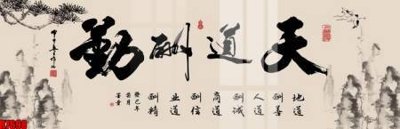 天道酬勤
地道
酬善
人道
酬誠
商道
酬信
业道
酬精
癸巳年